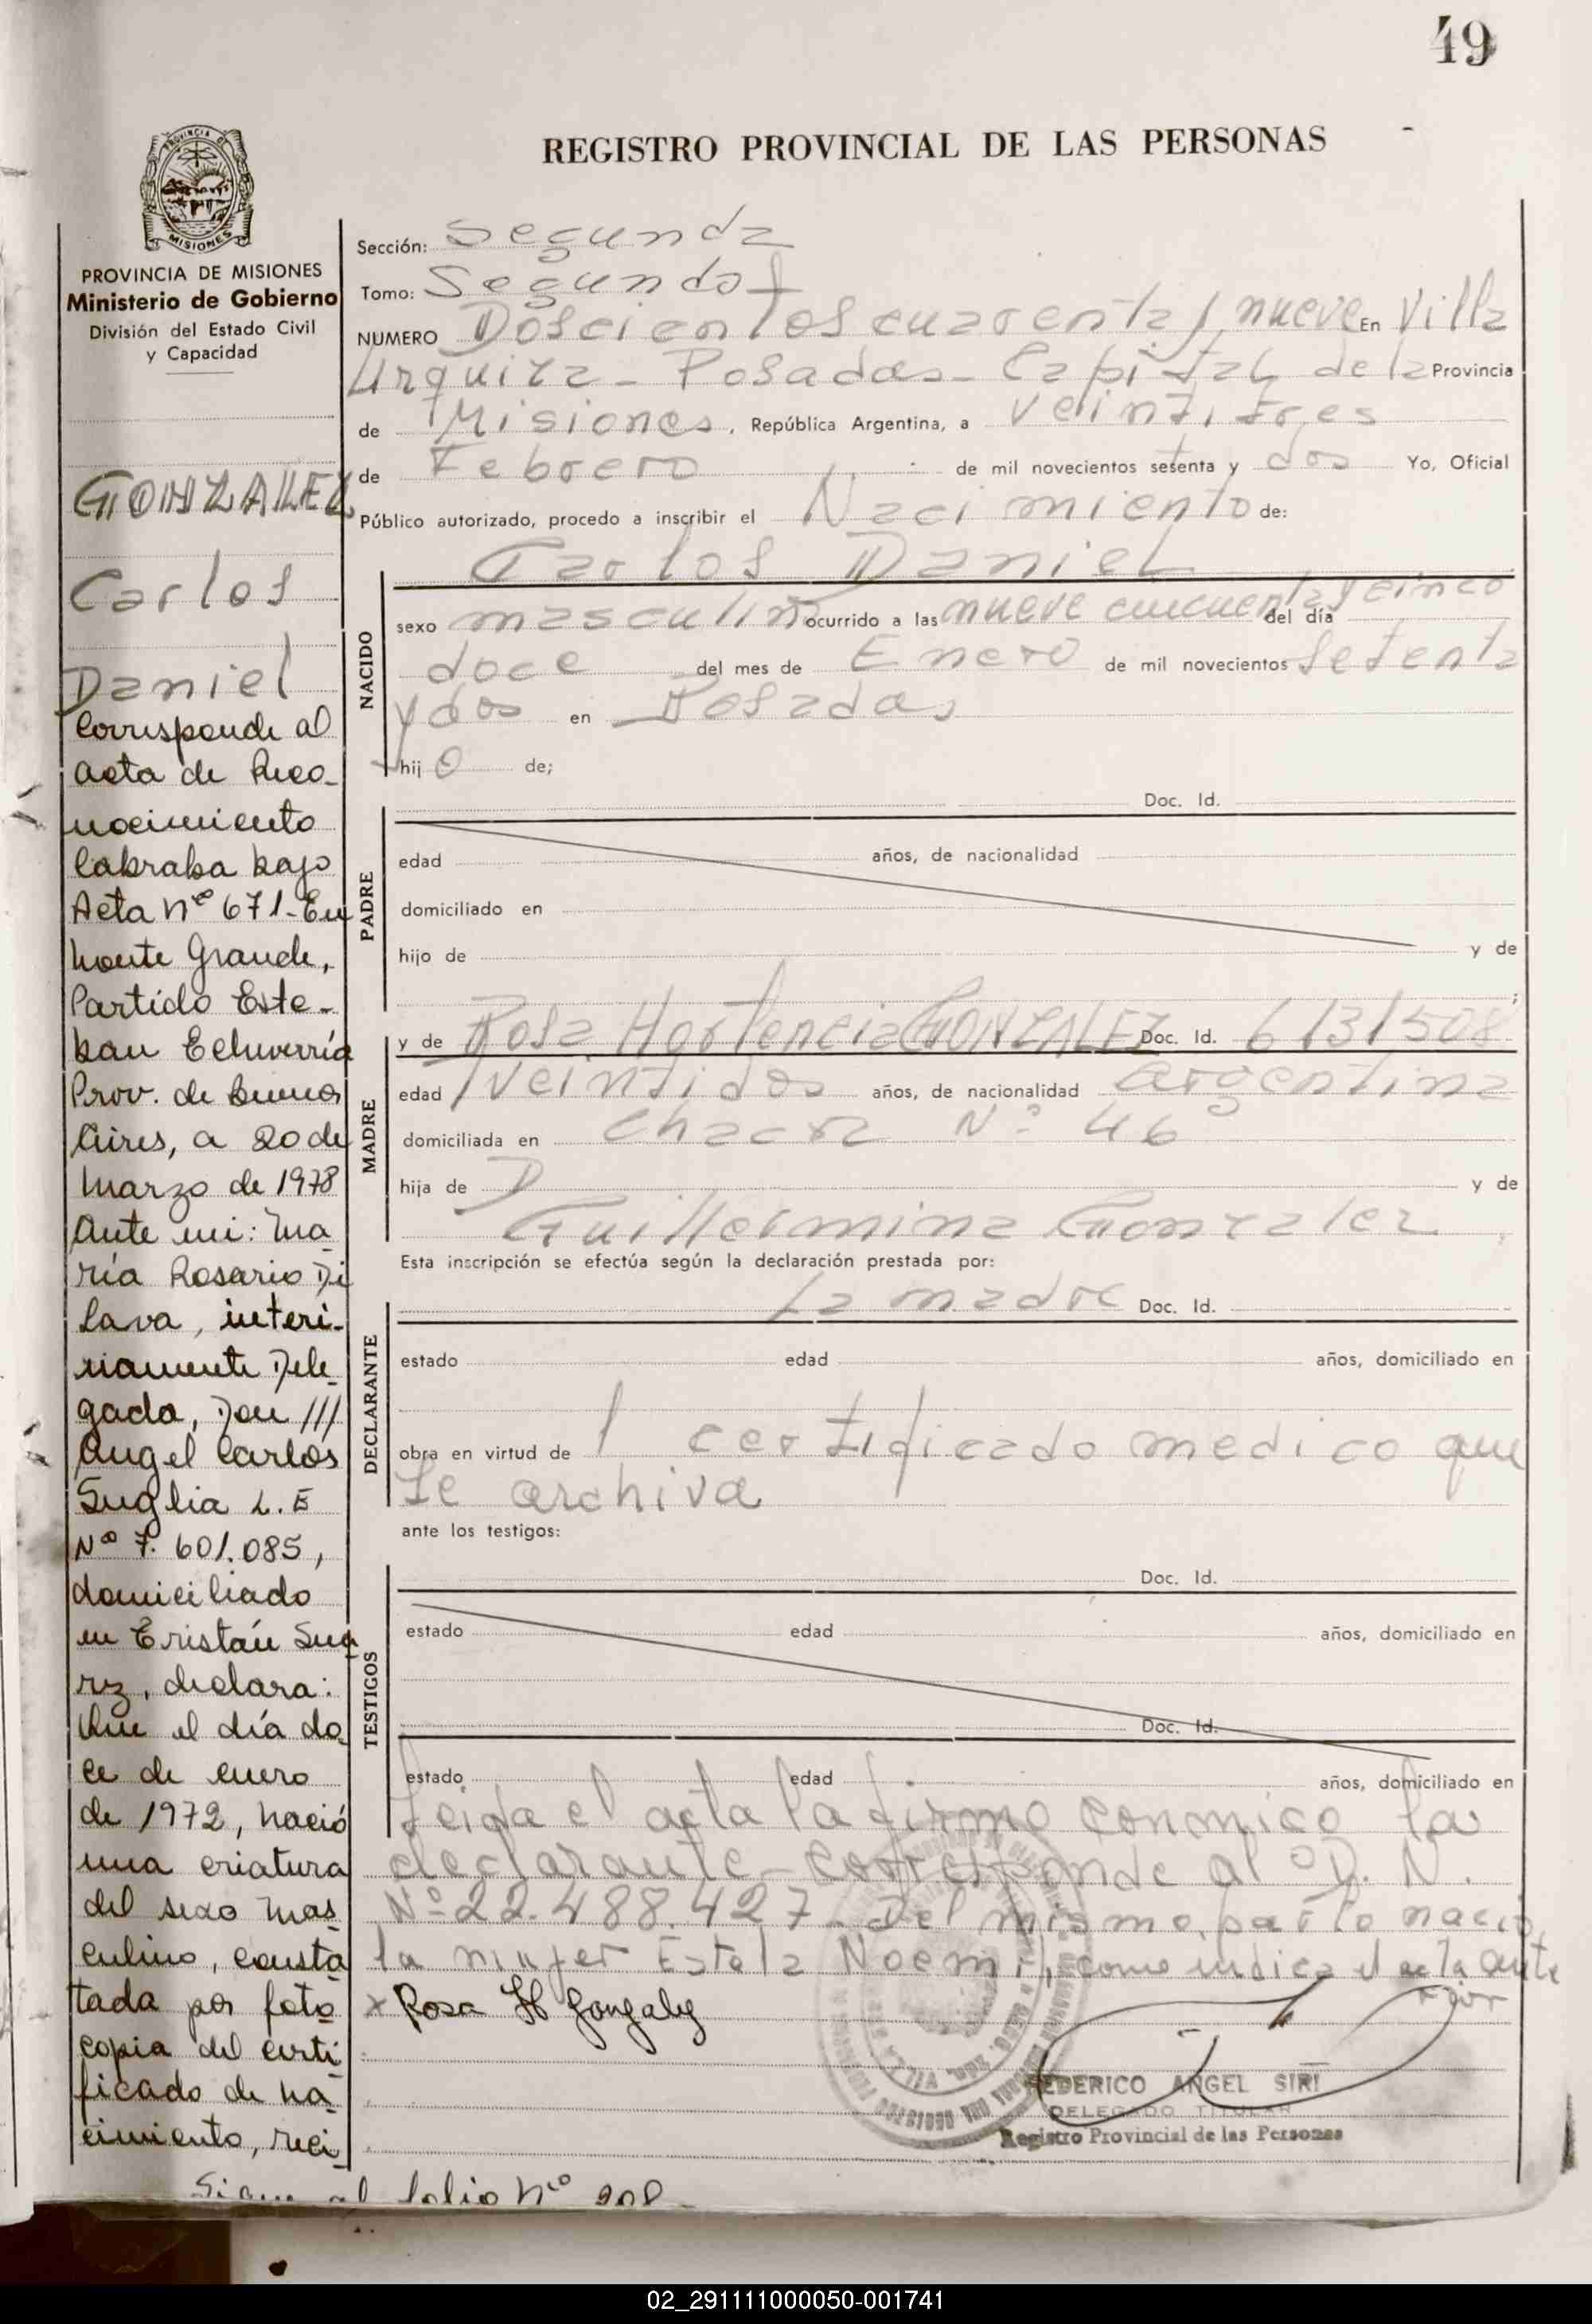 49
REGISTRO PROVINCIAL DE LAS PERSONAS
PROVINCIA DE
MISIONES
PROVINCIA DE MISIONES
Ministerio de Gobierno
División del Estado Civil
y Capacidad
GONZALEZ
Carlos
Daniel
Corresponde al
acta de Reco-
nocimiento
labraba bajo
Acta nº 671-En
Monte Grande,
Partido Este-
ban Echeverría
Prov. de Buenos
Aires, a 20 de
Marzo de 1978
Ante mi: Ma
ría Rosario Di
Lava, interi-
namente Dele-
gada, Don ///
Angel Carlos
Suglia L. E
Nº 7.601.085,
domiciliado
en Tristán Sua
rez, declara:
Que el día do-
ce de enero
de 1972, nació
una criatura
del sexo mas
culino, consta
tada por foto
copia del certi
ficado de na-
cimiento, reci-
Sección: Segunda
Tomo: Segundo
NUMERO Doscientos cuarenta y nueve En Villa
Urquiza - Posadas - Capital de la Provincia
de Misiones, República Argentina, a Veintitres
de Febrero de mil novecientos setenta y dos Yo, Oficial
Público autorizado, procedo a inscribir el Nacimiento de:
Carlos Daniel
NACIDO
sexo masculino ocurrido a las nueve cincuenta y cinco del día
doce del mes de Enero de mil novecientos Setenta
y dos en Posadas
hij o de;
PADRE
Doc. Id.
edad años, de nacionalidad
domiciliado en
hijo de y de
;
MADRE
y de Rosa Hortencia GONZALEZ Doc. Id. 6131508
edad Veintidos años, de nacionalidad argentina
domiciliada en Chacra Nº 46
hija de D y de
Guillermina Gonzalez
Esta inscripción se efectúa según la declaración prestada por:
DECLARANTE
La madre Doc. Id.
estado edad años, domiciliado en
obra en virtud de 1 certificado medico que
se archiva
ante los testigos:
TESTIGOS
Doc. Id.
estado edad años, domiciliado en
Doc. Id.
estado edad años, domiciliado en
Leida el acta la firmo conmico la
declarante - corresponde al D. N.
Nº 22.488.427 - Del mismo parto nacio
la mujer Estela Noemi, como indica el acta ante
rior
x Rosa H Gonzalez
FEDERICO ANGEL SIRI
DELEGADO TITULAR
Registro Provincial de las Personas
Sigue al folio Nº
02_291111000050-001741